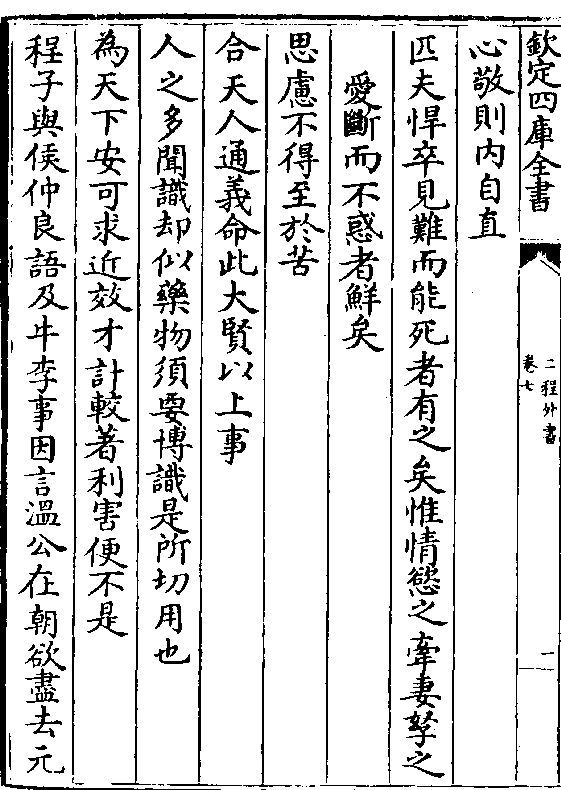 欽定四庫全書
二程外書
卷七
一
心敬則内自直
匹夫悍卒見難而能死者有之矣惟情慾之牽妻孥之
愛斷而不惑者鮮矣
思慮不得至於苦
合天人通義命此大賢以上事
人之多聞識却似藥物須要博識是所切用也
為天下安可求近效才計較著利害便不是
程子與侯仲良語及牛李事因言溫公在朝欲盡去元